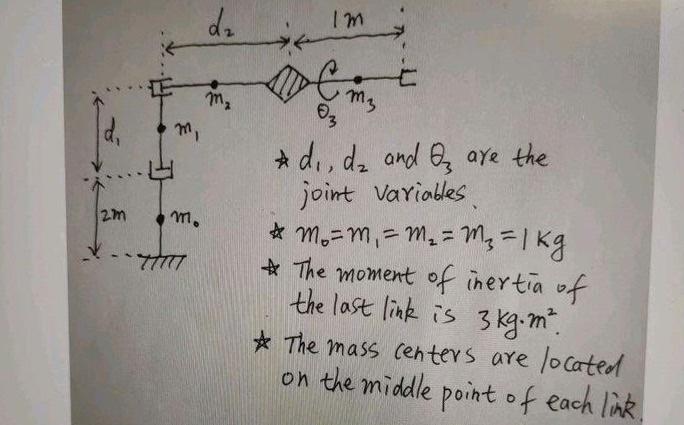 d₂
1m
m₂
θ₃
m₃
d₁
m₁
2m
m₀
☆ d₁, d₂ and θ₃ are the
joint variables.
☆ m₀=m₁=m₂=m₃=1kg
☆ The moment of inertia of
the last link is 3kg·m².
☆ The mass centers are located
on the middle point of each link.